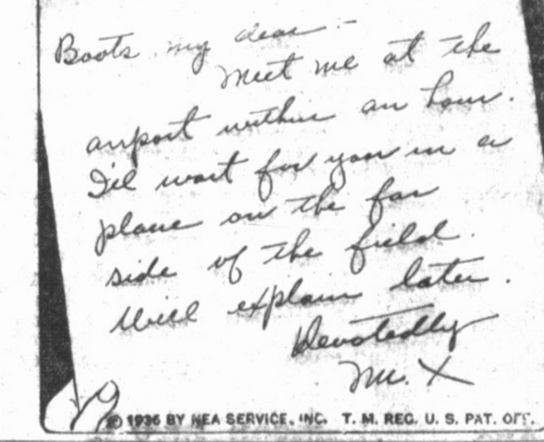 Boots my dear –
Meet me at the
airport within an hour.
I'll wait for you in a
plane on the far
side of the field.
Will explain later.
Devotedly
Mr. X
© 1936 BY NEA SERVICE, INC. T. M. REG. U. S. PAT. OFF.